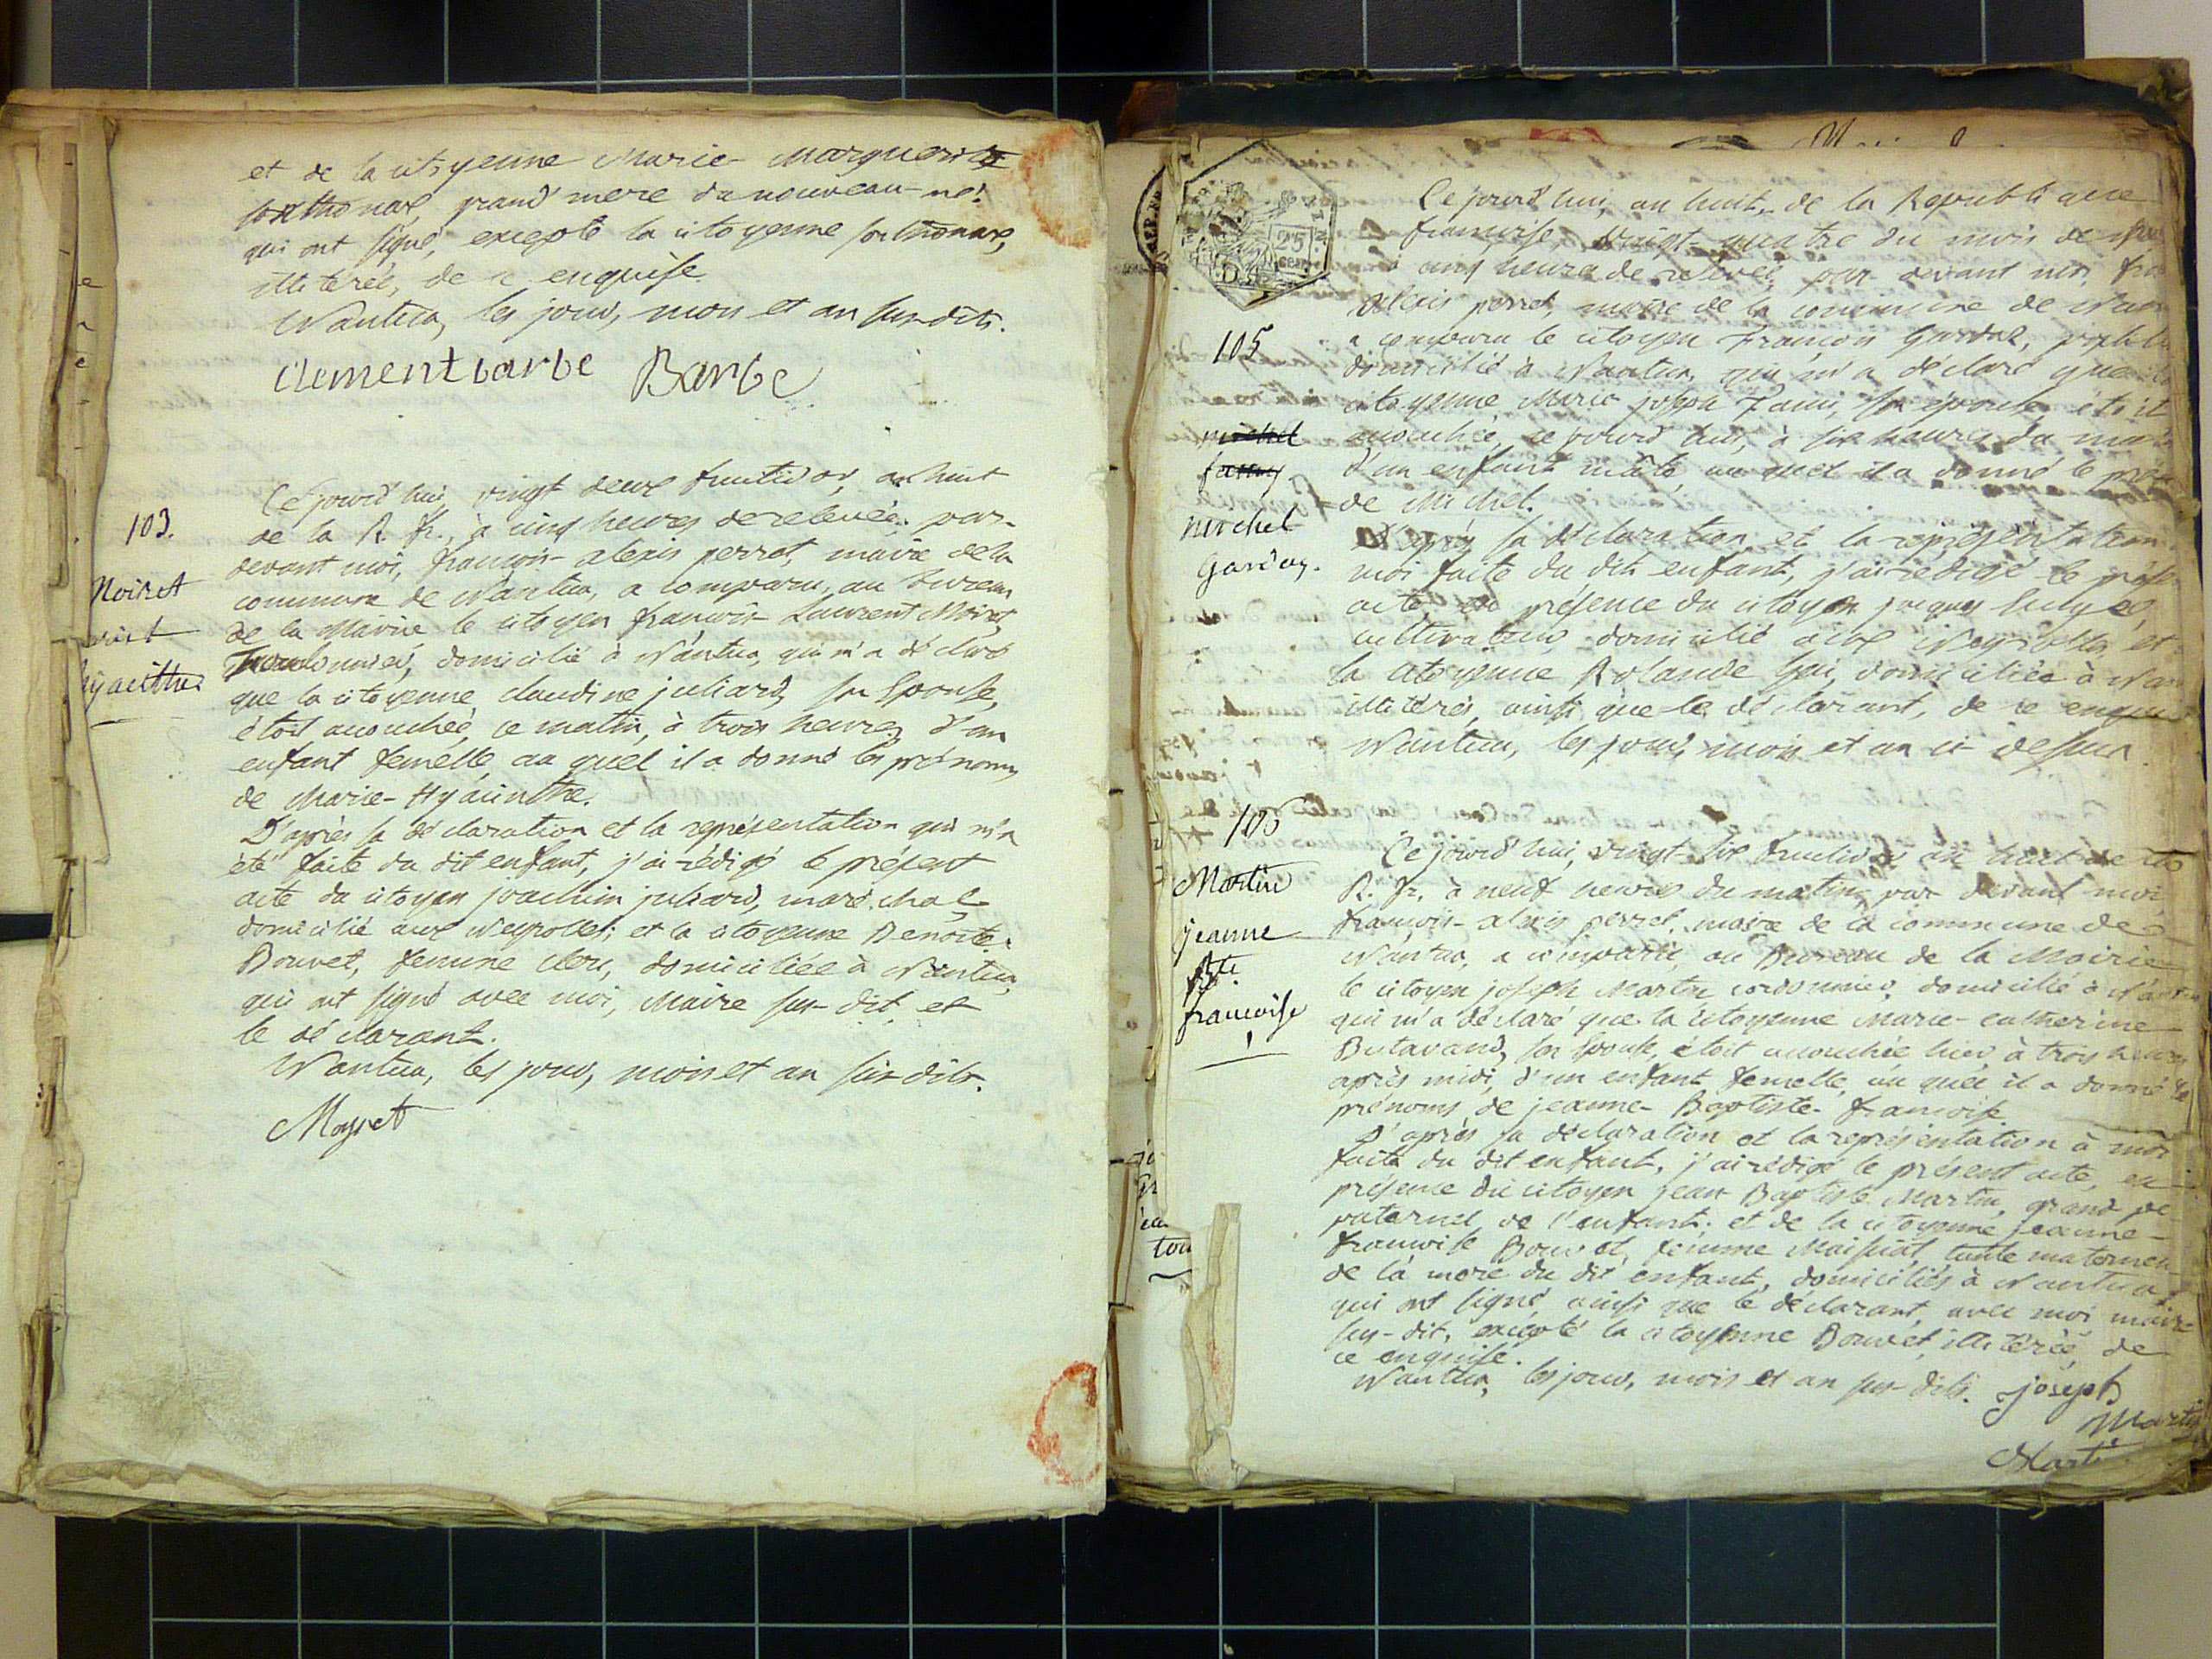 et de la citoyenne Marie Marguerite
Sonthonax, grand'mere du nouveau-né.
qui ont signé, excepté la citoyenne Sonthonax,
illiteréé, de ce enquise.
Nantua, les jour, mois et an sus-dits.
Clement barbe Barbe
103.
Moiret
hyacinthe
Ce jourd'hui, vingt deux fructidor, an huit
de la R. fr., à cinq heures de relevéé, par-
devant moi, françois-alexis perret, maire de la
commune de Nantua, a comparu, au Bureau
de la Mairie le citoyen françois Laurent Moiret,
domicilié à Nantua, qui m'a déclaré
que la citoyenne claudine juliard, sa Epouse,
étoit accouchéé, ce matin, à trois heures, d'un
enfant femelle, au quel il a donné les prénoms
de Marie-Hyacinthe.
D'après sa déclaration et la représentation qui m'a
été faite du dit enfant, j'ai rédigé le présent
acte du citoyen joachim juliard, maréchal
domicilié aux Neyrolles; et la citoyenne Benoite
Bouvet, femme domiciliéé à Nantua,
qui ont signé avec moi, Maire sus-dit, et
le déclarant.
Nantua, les jour, mois et an sus-dits.
Moyret
25
cen.
105
michel
fanny
michel
Garday.
Ce jourd'hui, an huit, de la Republique
francoise, vingt-quatre du mois de
à cinq heures de relevéé, par devant moi,
alexis perret, maire de la commune de
a comparu le citoyen François
domicilié à Nantua, qui m'a déclaré que
citoyenne Marie joseph sa épouse, étoit
accouchéé, ce jourd'hui, à six heures du
d'un enfant mâle, au quel il a donné le
de Michel.
D'après sa déclaration et la représentation
moi faite du dit enfant, j'ai rédigé le
acte, en présence du citoyen jacques
cultivateur, domicilié aux Neyrolles, et
la citoyenne Rolande domiciliéé à
illitérés, ainsi que le déclarant, de ce
Nantua, les jour, mois et an ci-dessus.
106
Martin
jeanne
Bte.
francoise
Ce jourd'hui, vingt-six fructidor an huit de la
R. fr. à neuf heures du matin, par devant moi,
françois-alexis perret, maire de la commune de
Nantua, a comparu, au Bureau de la Mairie
le citoyen joseph Martin cordonnier, domicilié à Nantua
qui m'a déclaré que la citoyenne Marie-catherine
Butavand, son épouse, étoit accouchéé hier, à trois heures
après midi, d'un enfant femelle, au quel il a donné les
prénoms de jeanne-Baptiste-francoise.
D'après sa déclaration et la représentation à moi
faite du dit enfant, j'ai rédigé le présent acte, en
présence du citoyen jean Baptiste Martin, grand pe
paternel de l'enfant; et de la citoyenne jeanne-
francoise Bouvet, femme Maissiat, tante maternel
de la mere du dit enfant, domiciliés à Nantua,
qui ont signé, ainsi que le déclarant, avec moi maire
sus-dit, excepté la citoyenne Bouvet, illitéréé, de
ce enquise.
Nantua, les jour, mois et an sus-dits. joseph
Martin
Martin